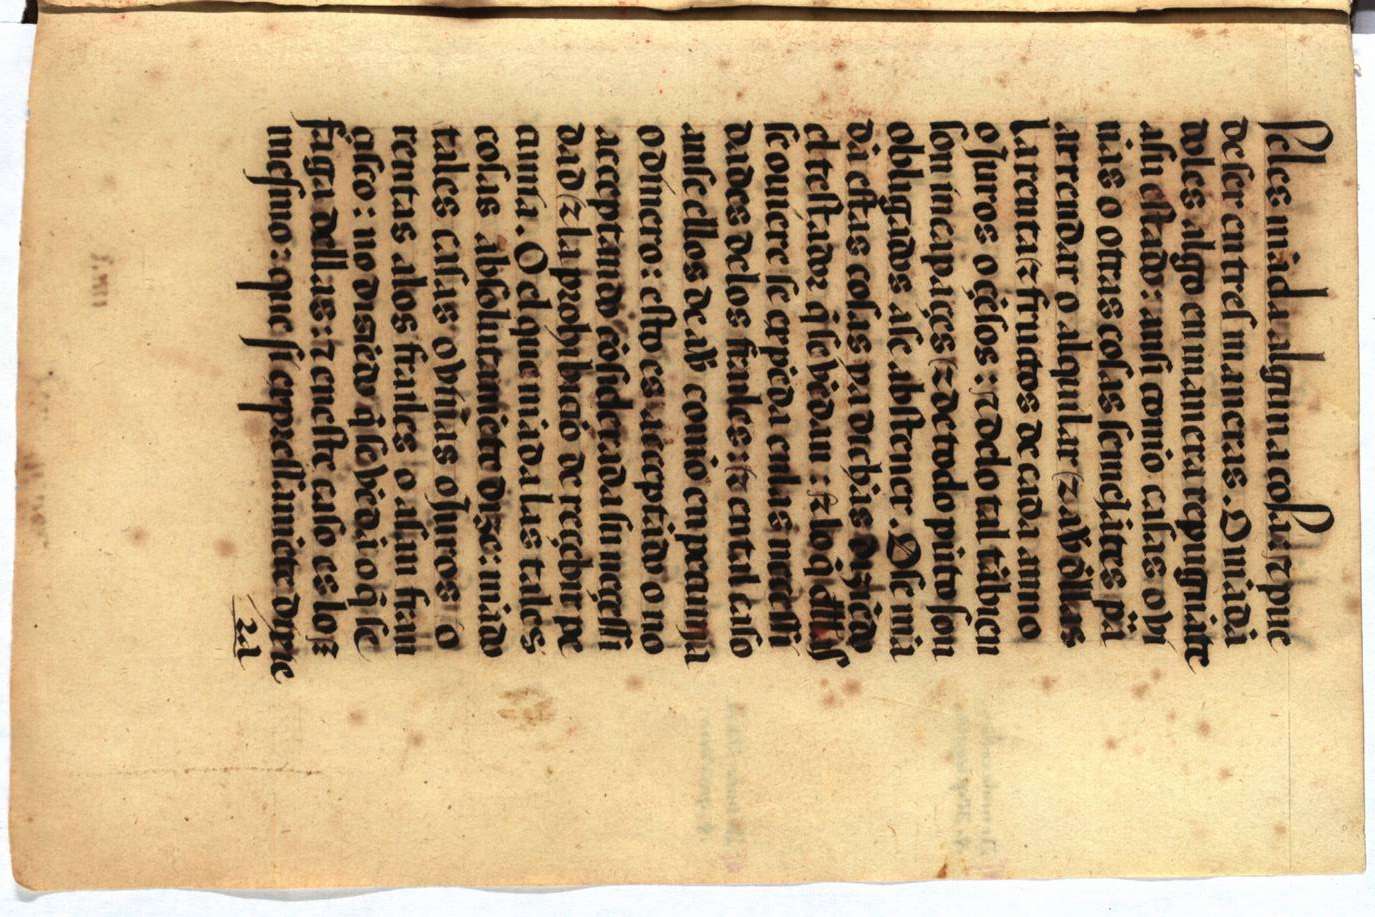 seles mãda alguna cosa: τ pue
de ser en tres maneras. Dmãda
doles algo en manera repugnãte
asu estado: ansi como casas o vj
ñas o otras cosas semejãtes pã
arrendar o alquilar (τ aṽ dllas
la renta (τ fructos de cada anno
o juros o çẽsos: τ delo tal tãbien
son incapãçes (τ de todo pũto son
obligados ase abstener. O se mã
da estas cosas ya dichas diziẽdo
el testador q̃ se vẽdan: (τ lo q̃ dllas
se ouiere se expẽda enlas neçessi
dades delos frailes: (τ en tal caso
anse ellos de aṽ como en pecunia
o dinero: esto es acceptãdo o no
acceptando cõsiderada su neçessi
dad (τ la prohibiciõ de reçebir pe
cunia. O el que mãda las tales
cosas absolutamẽte dize: mãdo
tales casas o viñas o juros o
rentas alos frailes o asan fran
çisco: no diziẽdo q̃ se vẽda o q̃ se
haga dellas: τ eneste caso es lo
mesmo: que si expressamẽte dixe